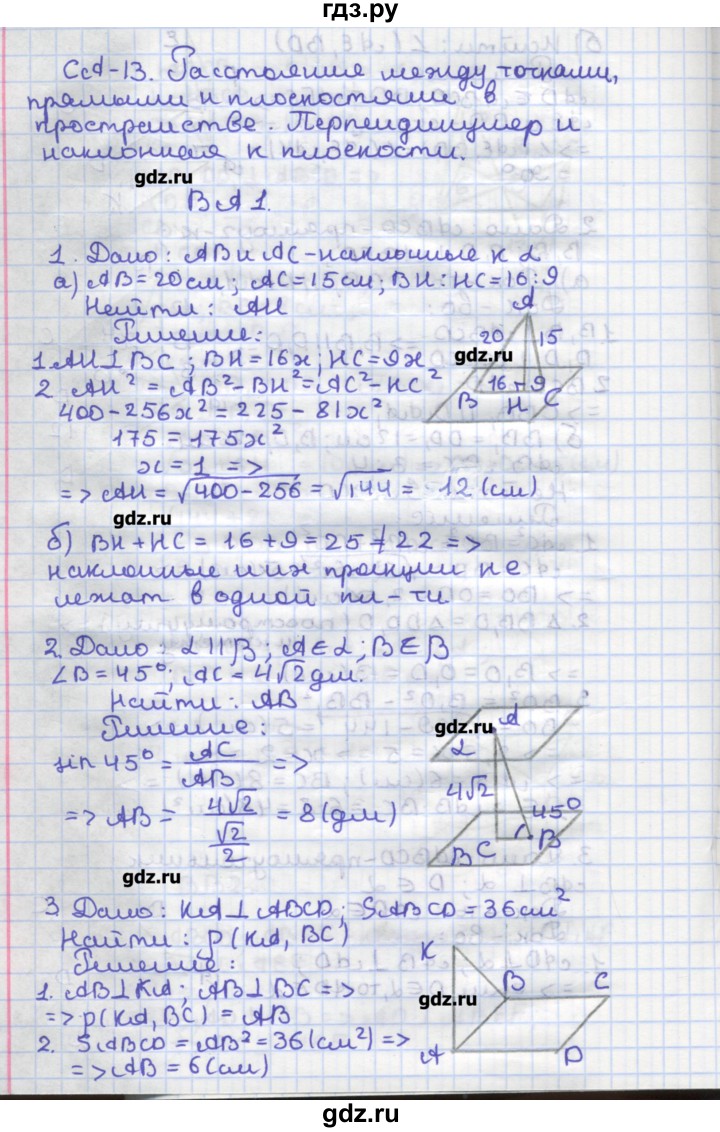 гдз.ру
СА-13. Расстояние между точками,
прямыми и плоскостями в
пространстве. Перпендикуляр и
наклонная к плоскости.
gdz.ru
ВА 1.
1. Дано: AB и AC - наклонные к α
а) AB = 20 см; AC = 15 см; BH : HC = 16 : 9
Найти: AH
Решение:
1. AH ⊥ BC; BH = 16x; HC = 9x
2. AH² = AB² - BH² = AC² - HC²
400 - 256x² = 225 - 81x²
175 = 175x²
x = 1 =>
=> AH = √400-256 = √144 = 12 (см)
A
20
15
gdz.ru
16
9
B
H
C
gdz.ru
б) BH + HC = 16 + 9 = 25 ≠ 22 =>
наклонные и их проекции не
лежат в одной пл-ти
2. Дано: α || β; A ∈ α; B ∈ β
∠B = 45°; AC = 4√2 дм.
Найти: AB
Решение:
sin 45° = AC/AB =>
=> AB = 4√2/(√2/2) = 8 (дм)
gdz.ru
A
α
4√2
45°
B
B C
gdz.ru
3. Дано: KA ⊥ ABCD; SABCD = 36 см²
Найти: p(KA, BC)
Решение:
1. AB ⊥ KA; AB ⊥ BC =>
=> p(KA, BC) = AB
2. SABCD = AB² = 36 (см²) =>
=> AB = 6 (см)
K
B
C
gdz.ru
A
D
gdz.ru